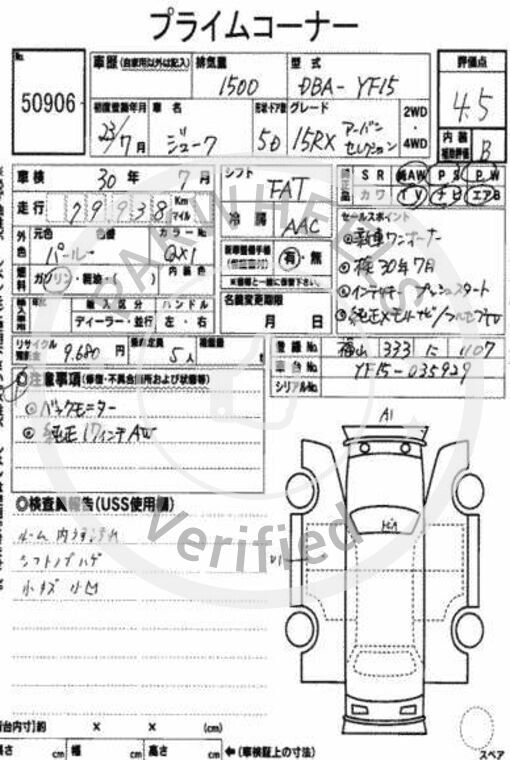 プライムコーナー
No. 50906
車歴 (自家用以外は記入) 排気量 1500 型式 DBA-YF15 評価点 4.5
初度登録年月 23/7月 車名 ジューク 形状・ドア数 5D グレード 15RX アーバンセレクション 2WD・4WD 内装補助評価 B
車検 30年 7月 シフト FAT 純正品 SR 純AW PS PW
カワ TV ナビ エアB
走行 79938 Km マイル 冷房 AAC
セールスポイント
①新車ワンオーナー
②検30年7月
③インテリキー プッシュスタート
外色 元色 色替 パール カラーNo. QX1 新車整備手帳 (保証書付) 有・無
※車種と一緒に保管下さい。
燃料 ガソリン・軽油・( ) 内装色
輸入車 年式 輸入区分 ハンドル 名義変更期限
ディーラー・並行 左・右 月 日
リサイクル預託金 9.680円 乗車定員 5人 積載量
登録No. 福山 333 1107
車台No. YF15-035929
シリアルNo.
◎注意事項 (修復・不具合個所および状態等)
①バックモニター
②純正17インチAW
◎検査員報告(USS使用欄)
ルーム内
シフトノブハゲ
小キズ 小凹
A1
PARWHEELS
Verified
荷台内寸)約 × × (cm)
長さ cm 幅 cm 高さ cm ←(車検証上の寸法)
スペア